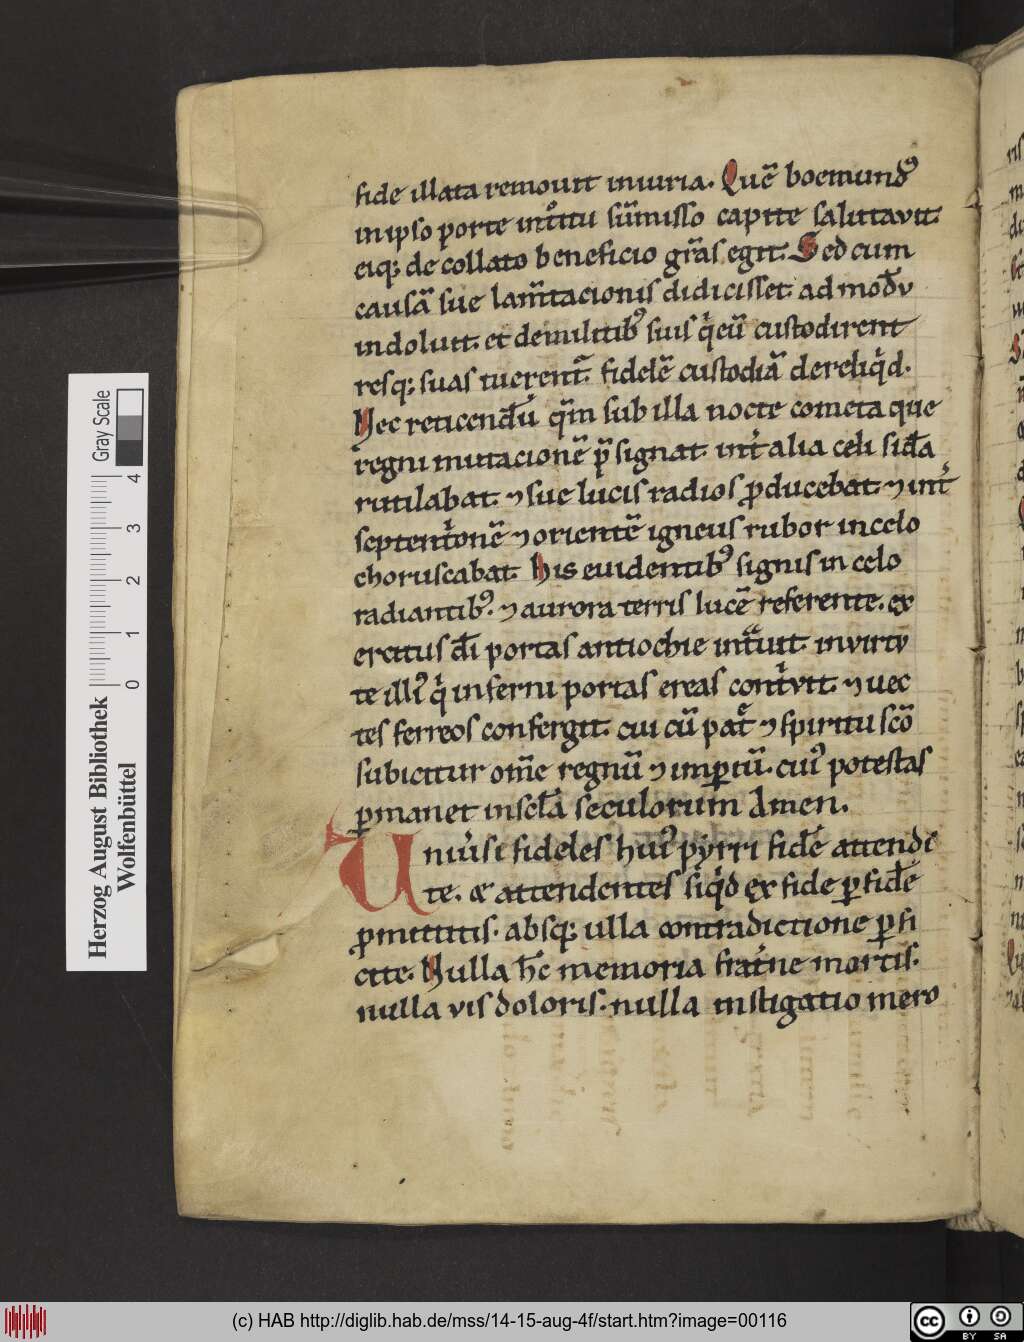 fide illata remouit iniuria. Quē boemundꝰ
in ipso porte int̊itu sūmisso capite salutavit.
eiq; de collato beneficio gr̄as egit. Sed cum
causā sue lam̄tacionis didicisset ad modū
indoluit. et de militibꝰ suis q̇ eū custodirent
resq; suas tuerent᷑. fidelē custodiā dereliq̇d.
Hec reticendū q̄m sub illa nocte cometa que
regni mutacionē p̄signat int̓ alia celi sid̓a
rutilabat. ⁊ sue lucis radios ꝓducebat. ⁊ int̓
septent̓onē ⁊ orientē igneus rubor in celo
choruscabat. His euidentibꝰ signis in celo
radiantibꝰ. ⁊ aurora terris lucē referente. ex
ercitus dī portas antiochie int̃uit. in virtu
te illiꝰ q̇ inferni portas ereas cont̓vit. ⁊ uec
tes ferreos confregit. cui cū pat̓ ⁊ spiritu sc̄o
subicitur om̄e regnū ⁊ imꝑiū. cuiꝰ potestas
ꝑmanet in sc̄la seculorum Amen.
Uniu̓si fideles huiꝰ pyrri fidē attendi
te. & attendentes siq̇d ex fide ꝑfid̄e
ꝓmittitis. absq; ulla contradictione ꝑfi
cite. Nulla h̄c memoria frat̓ne mortis.
nulla vis doloris. nulla instigatio mero
Herzog August Bibliothek
Wolfenbüttel
Gray Scale
0 1 2 3 4
(c) HAB http://diglib.hab.de/mss/14-15-aug-4f/start.htm?image=00116
cc BY SA